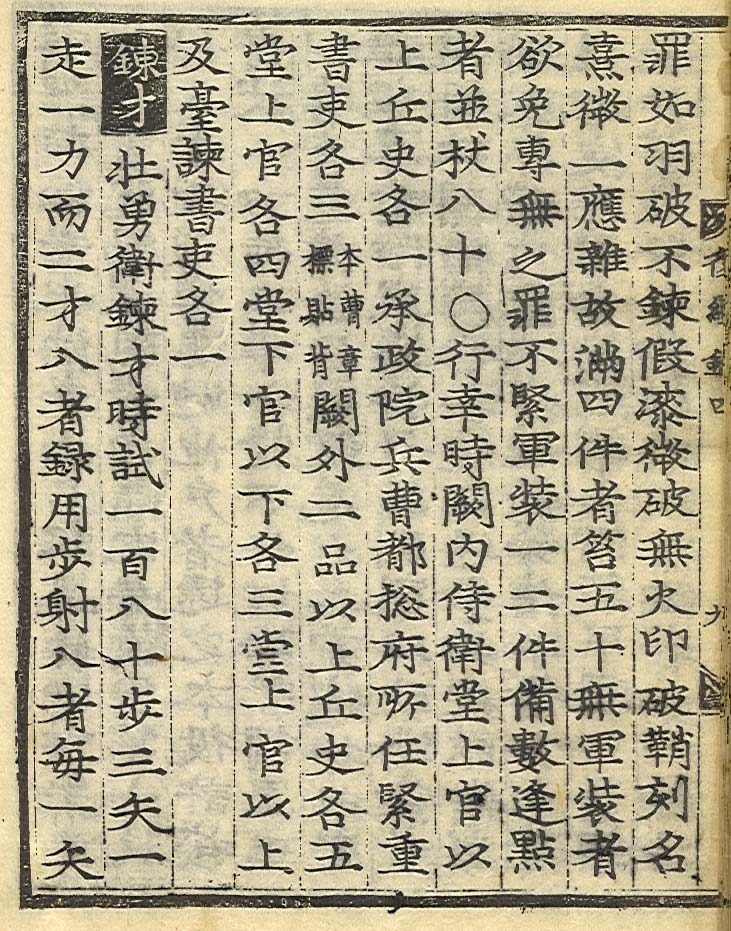 罪如羽破不鍊假漆微破無火印破鞘刻名
熹微一應雜故滿四件者笞五十無軍裝者
欲免專無之罪不緊軍裝一二件備數逢點
者並杖八十○行幸時闕内侍衛堂上官以
上丘史各一承政院兵曹都摠府所任緊重
書吏各三本曹章標貼背闕外二品以上丘史各五
堂上官各四堂下官以下各三堂上官以上
及臺諫書吏各一
鍊才壯勇衛鍊才時試一百八十步三矢一
走一力而二才入者錄用步射入者每一矢